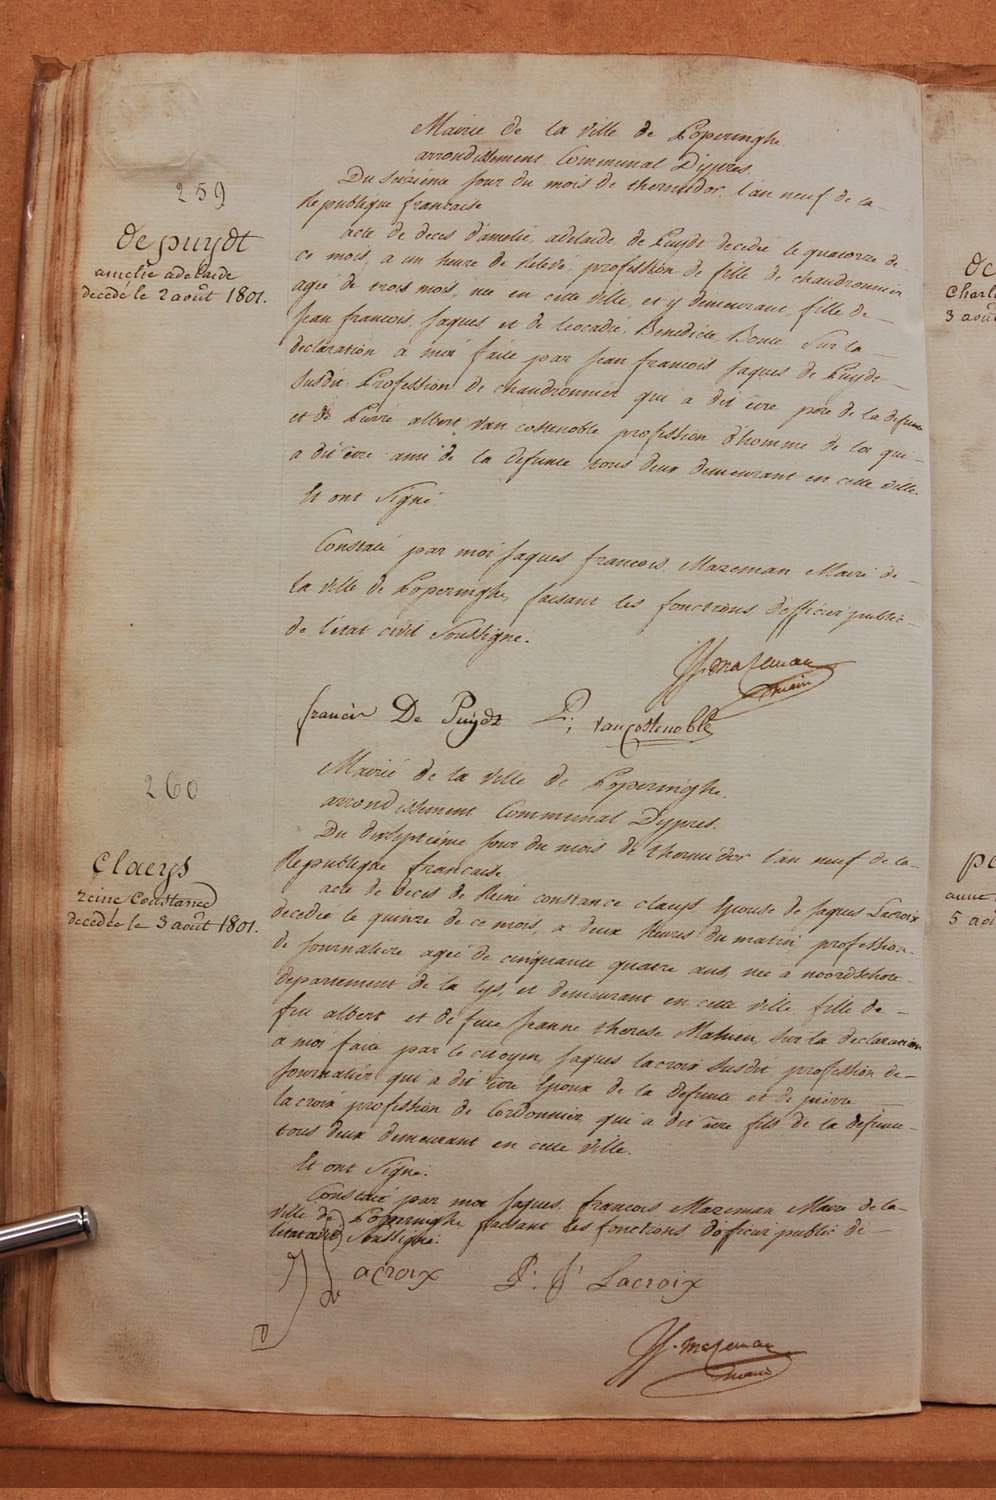 259
de puydt
amelie adelaide
decedé le 2 août 1801.
Mairie de la ville de Poperinghe
arrondissement Communal D'ypres.
Du seizieme jour du mois de thermidor, l'an neuf de la
Republique francaise
acte de deces d'amelie, adelaide, de Puydt decedée le quatorze de
ce mois, a un heure de relevé, profession de fille de chaudronnier
agée de trois mois, née en cette ville, et y demeurant, fille de
Jean francois, Jaques et de leocadie, Benedicte, Sur la
declaration a moi faite par Jean francois Jaques de Puydt
susdit Profession de chaudronnier qui a dit être pere de la defunte
et de Pierre albert Van costenoble profession d'homme de loi qui
a dit être ami de la defunte tous deux demeurant en cette ville.
Et ont Signé.
Constaté par moi Jaques francois Mazeman Maire de
la ville de Poperinghe, faisant les fonctions d'officier public
de l'état civil Soussigné.
JJ. mazeman
maire
francis De Puydt P; vancostenoble
260
Claeys
reine Constance
decedée le 3 août 1801.
Mairie de la ville de Poperinghe
arrondissement Communal D'ypres.
Du dixseptieme jour du mois de thermidor l'an neuf de la
Republique francaise
acte de deces de Reine constance claeys Epouse de Jaques Lacroix
decedée le quinze de ce mois, a deux heures du matin profession
de journaliere agée de cinquante quatre ans, née a noordschote
departement de la lys, et demeurant en cette ville, fille de
feu albert et de feue Jeanne therese Mahieu, sur la declaration
a moi faite par le citoyen Jaques lacroix susdit, profession de
journalier qui a dit être Epoux de la defunte et de pierre
lacroix profession de Cordonnier qui a dit être fils de la defunte
tous deux demeurant en cette ville.
Et ont Signé.
Constaté par moi Jaques francois Mazeman Maire de la
ville de Poperinghe faisant les fonctions d'officier public de
l'etat civil Soussigné.
J lacroix P. J Lacroix
JJ. mazeman
maire
de
Charle
3 août
pe
anne
5 aoû